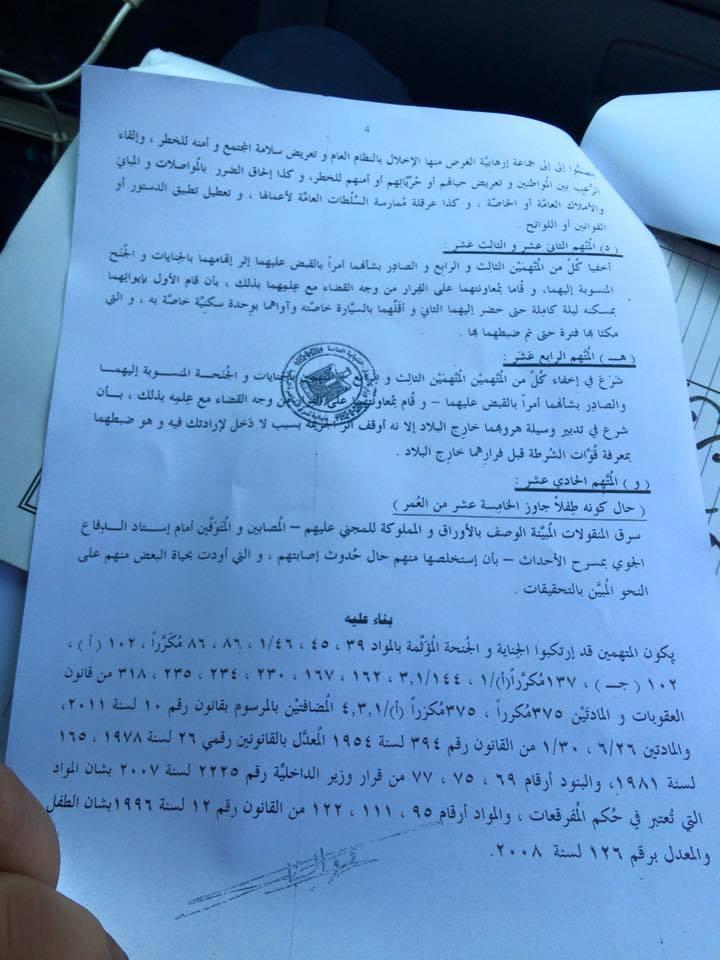 4
إنضمُّوا إلى إلى جماعة إرهابيَّة الغرض منها الإخلال بالنظام العام و تعريض سلامة المجتمع و أمنه للخطر ، وإلقاء
الرُّعب بين المُواطنين و تعريض حياتهم أو حُرِّيَّاتِهم أو أمنهم للخطر، و كذا إلحاق الضرر بالمُواصلات و المباني
والأملاك العامَّة أو الخاصَّة ، و كذا عرقلة مُمارسة السُلْطات العامَّة لأعمالها ، و تعطيل تطبيق الدستور أو
القوانين أو اللوائح .
( د ) المُتَّهم الثاني عشر و الثالث عَشَر :
أخفيا كُلّ من المُتَّهمَيْن الثالث و الرابع و الصادِر بشأنهما أمراً بالقبض عليهما إثر إتهامهما بالجنايات و الجُنَح
المنسوبة إليهما، و قُاما بمُعاونتهما على الفِرار من وجه القضاء مع عِلمِهما بذلك ، بأن قام الأول بإيوائهما
بمسكنه ليلة كامِلة حتى حضر إليهما الثاني و أقلَّهما بالسيَّارة خاصَّته وآواهما بوحدة سكنيَّة خاصَّة به ، و التي
مكثا بها فترة حتى تم ضبطهما بها .
( هــ ) المُتَّهم الرابع عَشَر :
شرَع في إخفاء كُلّ من المُتَّهميْن المُتَّهمَيْن الثالث و بالجنايات و الجُنحة المنسوبة إليهما
والصادِر بشأنهما أمراً بالقبض عليهما – و قُام بمُعاونتهما على من وجه القضاء مع عِلمِه بذلك ، بـأن
شرع في تدبير وسيلة هروبهما خارج البلاد إلا نه أوقف أثر الجريمة بسبب لا دَخل لإرادتك فيه و هو ضبطهما
بمعرفة قُوَّات الشُرطة قبل فرارِهما خارج البلاد .
( و ) المُتَّهِم الحادي عشر :
( حال كونه طِفلاً جاوز الخامِسة عشر من العُمر )
سرق المنقولات المُبيَّنة الوصف بالأوراق و المملوكة للمجني عليهم – المُصابين و المُتَوَفّين أمام إستاد الـدِفاع
الجوي بمسرح الأحداث – بأن إستخلصها منهم حال حُدوث إصابتهم ، و التي أودت بحياة البعض منهم على
النحو المُبيَّن بالتحقيقات .
بناء عليه
يكون المتهمين قد إرتكبوا الجِناية و الجُنحة المُؤَثَّمة بالمواد ٣٩ ، ٤٥ ، ١/٤٦ ، ٨٦ ، ٨٦ مُكَرَّراً ، ١٠٢ ( أ ) ،
١٠٢ ( جــ ) ، ١٣٧مُكرَّراً(أ)/١ ، ٣,١/١٤٤ ، ١٦٢ ، ١٦٧ ، ٢٣٠ ، ٢٣٤ ، ٢٣٥ ، ٣١٨ من قانون
العقوبات و المادتَيْن ٣٧٥مُكرراً ، ٣٧٥مُكرَراً (أ)/٤,٣,١ المُضافتيْن بالمرسوم بقانون رقم ١٠ لسنة ٢٠١١،
والمادتين ٦/٢٦ ، ١/٣٠ من القانون رقم ٣٩٤ لسنة ١٩٥٤ المُعدَّل بالقانونين رقمي ٢٦ لسنة ١٩٧٨ ، ١٦٥
لسنة ١٩٨١، والبنود أرقام ٦٩ ، ٧٥ ، ٧٧ من قرار وزير الداخليَّة رقم ٢٢٢٥ لسنة ٢٠٠٧ بشان المواد
التي تُعتبر في حُكم المُفرقعات ، والمواد أرقام ٩٥ ، ١١١ ، ١٢٢ من القانون رقم ١٢ لسنة ١٩٩٦بشان الطفل
والمعدل برقم ١٢٦ لسنة ٢٠٠٨.